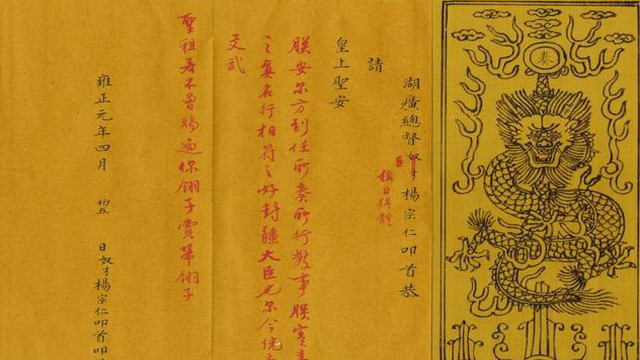 奏
湖廣總督奴才楊宗仁叩首恭
臣
稱臣得體
請
皇上聖安
朕安尔方到任所奏所行數事朕寔
之真名行相符之好封疆大臣也尔今統
文武
聖祖若不曾賜過你翎子賞單翎子
雍正元年四月 初五 日奴才楊宗仁叩首叩